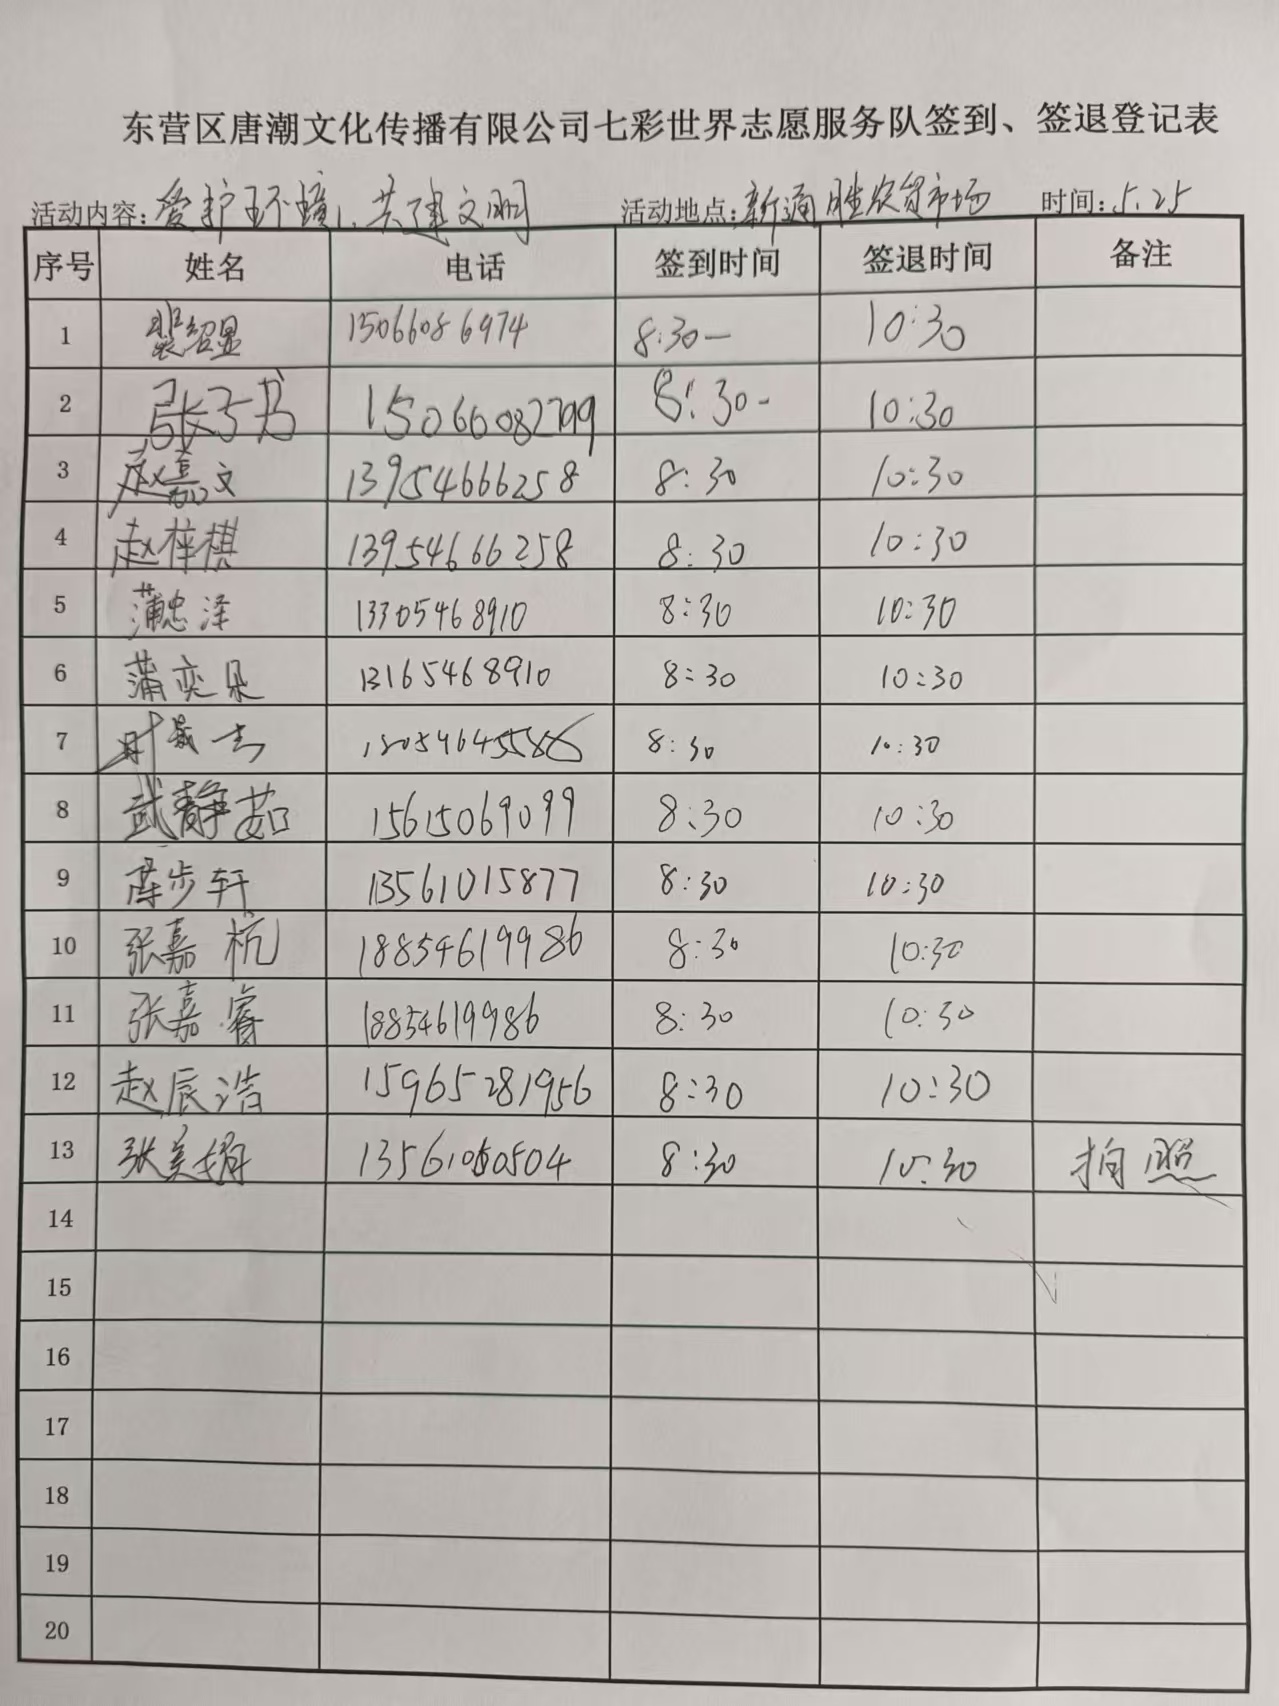 东营区唐潮文化传播有限公司七彩世界志愿服务队签到、签退登记表
活动内容:爱护环境、共建文明 活动地点:新通胜农贸市场 时间:5.25
序号 姓名 电话 签到时间 签退时间 备注
1 裴绍显 15066086974 8:30— 10:30
2 张子书 15066082799 8:30- 10:30
3 赵嘉文 13954666258 8:30 10:30
4 赵梓棋 13954666258 8:30 10:30
5 蒲忠泽 13305468910 8:30 10:30
6 蒲奕朵 13165468910 8:30 10:30
7 8:30 10:30
8 武静茹 15615069099 8:30 10:30
9 步轩 13561015877 8:30 10:30
10 张嘉杭 18854619986 8:30 10:30
11 张嘉睿 18854619986 8:30 10:30
12 赵辰浩 15965281956 8:30 10:30
13 张美娟 8:30 10:30 拍照
14
15
16
17
18
19
20